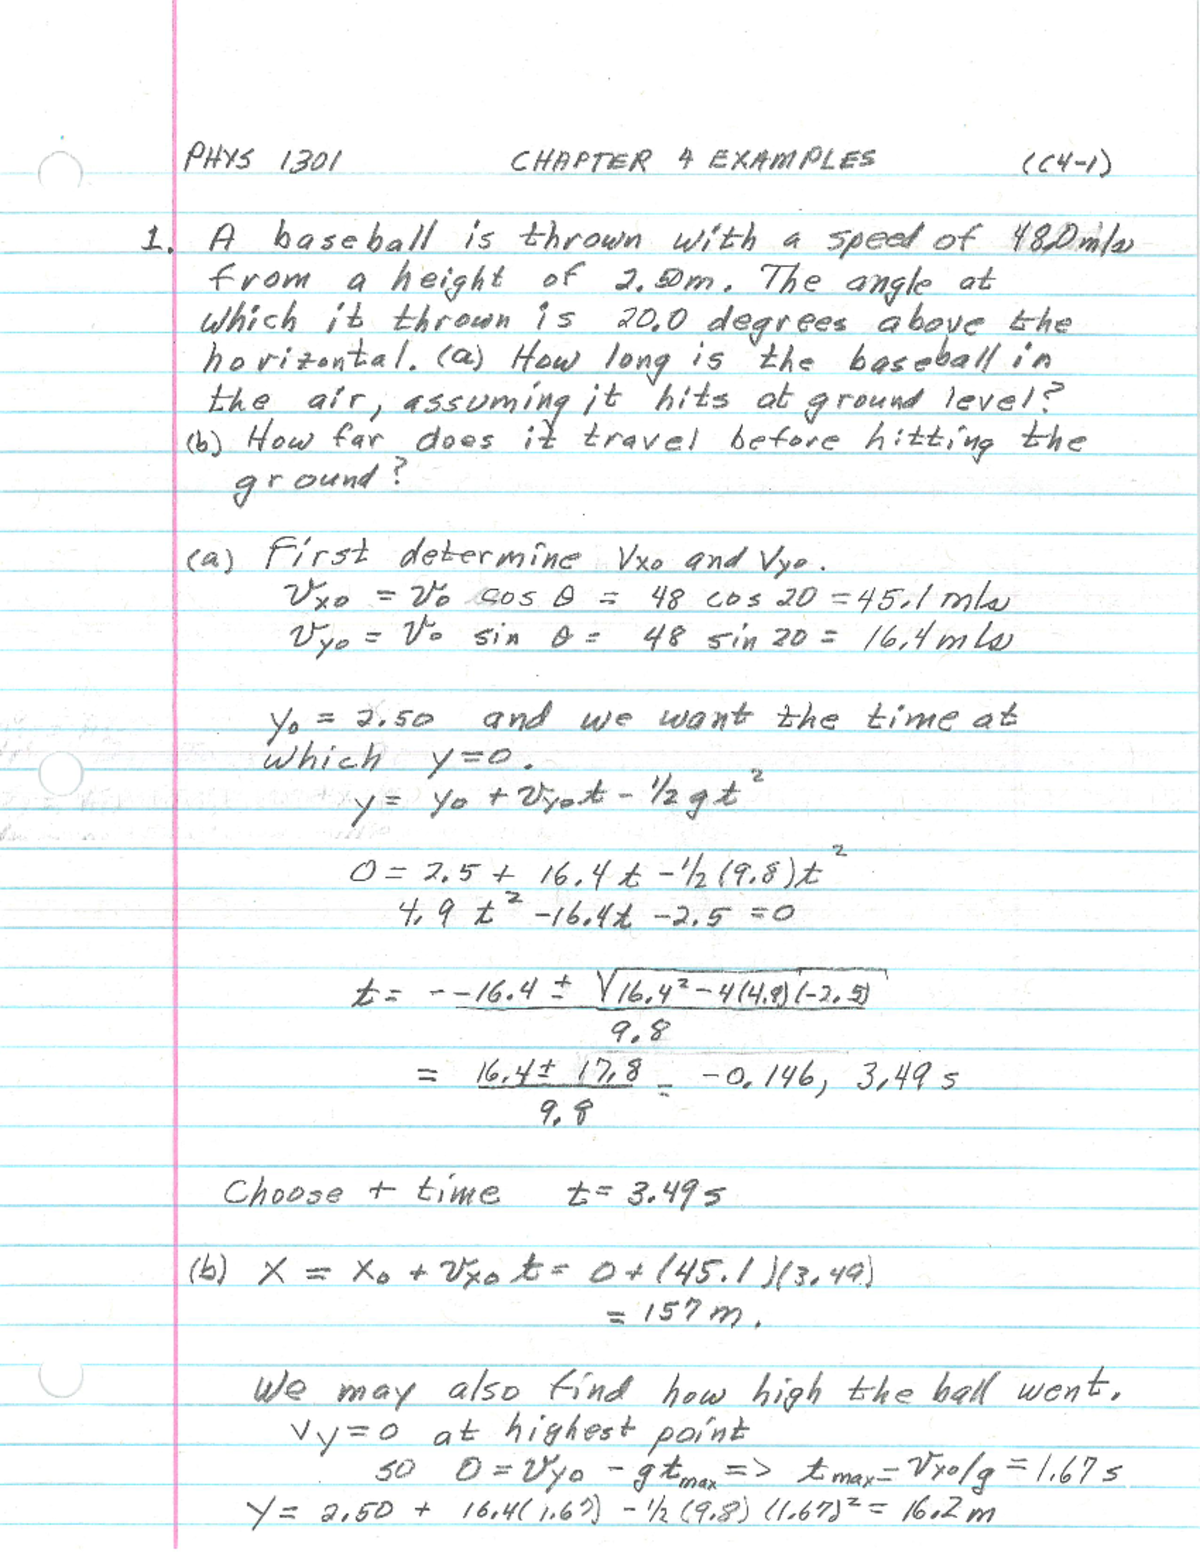 PHYS 1301 CHAPTER 4 EXAMPLES (C4-1)
1. A baseball is thrown with a speed of 48.0 m/s
from a height of 2.50m. The angle at
which it thrown is 20.0 degrees above the
horizontal. (a) How long is the baseball in
the air, assuming it hits at ground level?
(b) How far does it travel before hitting the
ground?
(a) First determine Vxo and Vyo.
Vxo = Vo cos θ = 48 cos 20 = 45.1 m/s
Vyo = Vo sin θ = 48 sin 20 = 16.4 m/s
yo = 2.50 and we want the time at
which y=0.
y = yo + Vyot - 1/2 gt²
0 = 2.5 + 16.4 t - 1/2 (9.8)t²
4.9 t² -16.4t -2.5 = 0
t = - -16.4 ± √16.4² - 4(4.9)(-2.5)
9.8
= 16.4 ± 17.8 = -0.146, 3.49 s
9.8
Choose + time t = 3.49 s
(b) X = Xo + Vxo t = 0 + (45.1)(3.49)
= 157 m.
We may also find how high the ball went.
Vy=0 at highest point
so 0 = Vyo - gtmax => tmax = Vyo/g = 1.67 s
Y = 2.50 + 16.4(1.67) - 1/2 (9.8) (1.67)² = 16.2 m